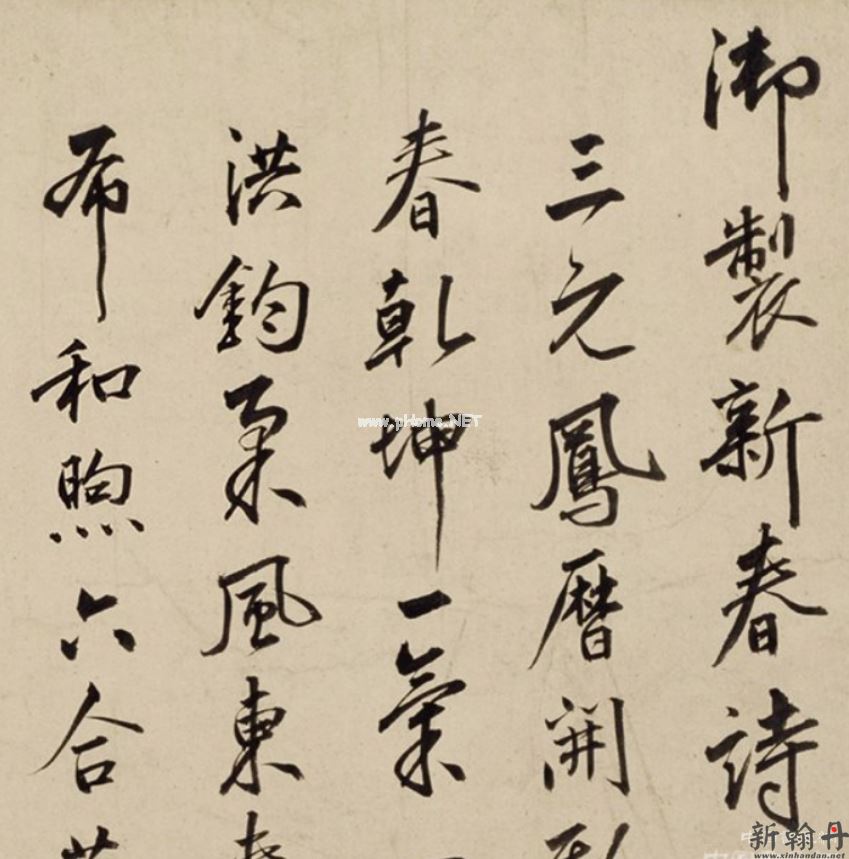 御製新春詩
三元鳳曆開
春乾坤一氣
洪鈞柔風東
布和煦六合
www.pHome.NET
新翰丹
www.xinhandan.net